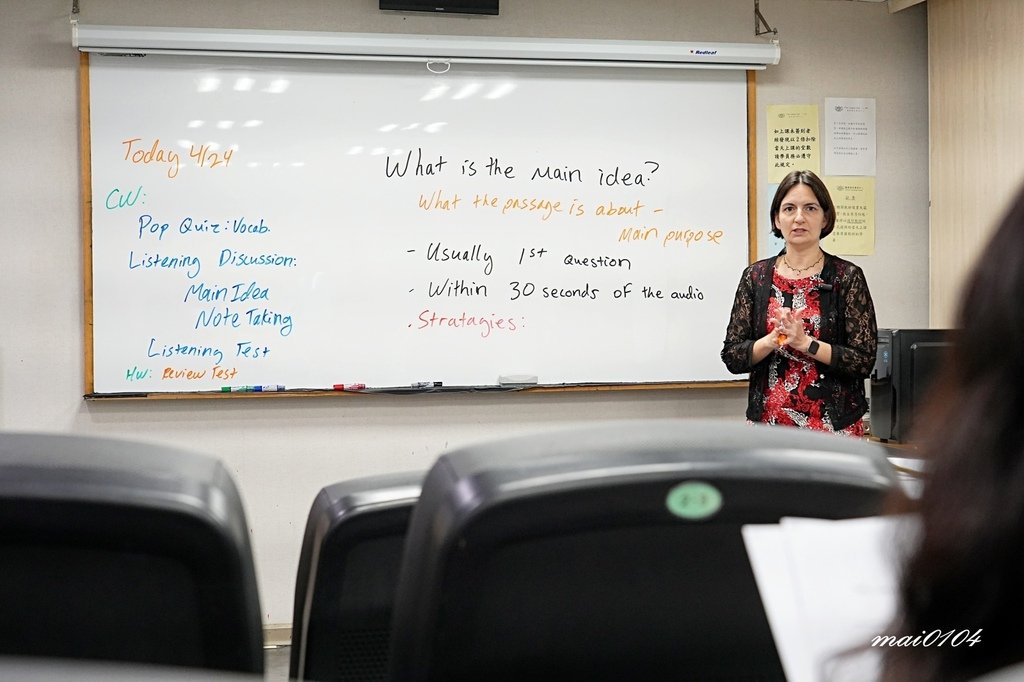 Redleaf
Today 4/24
CW:
Pop Quiz: Vocab.
Listening Discussion:
Main Idea
Note Taking
Listening Test
HW: Review Test
What is the Main idea?
What the passage is about -
Main purpose
- Usually 1st question
- Within 30 seconds of the audio
. Stratagies:
mai0104